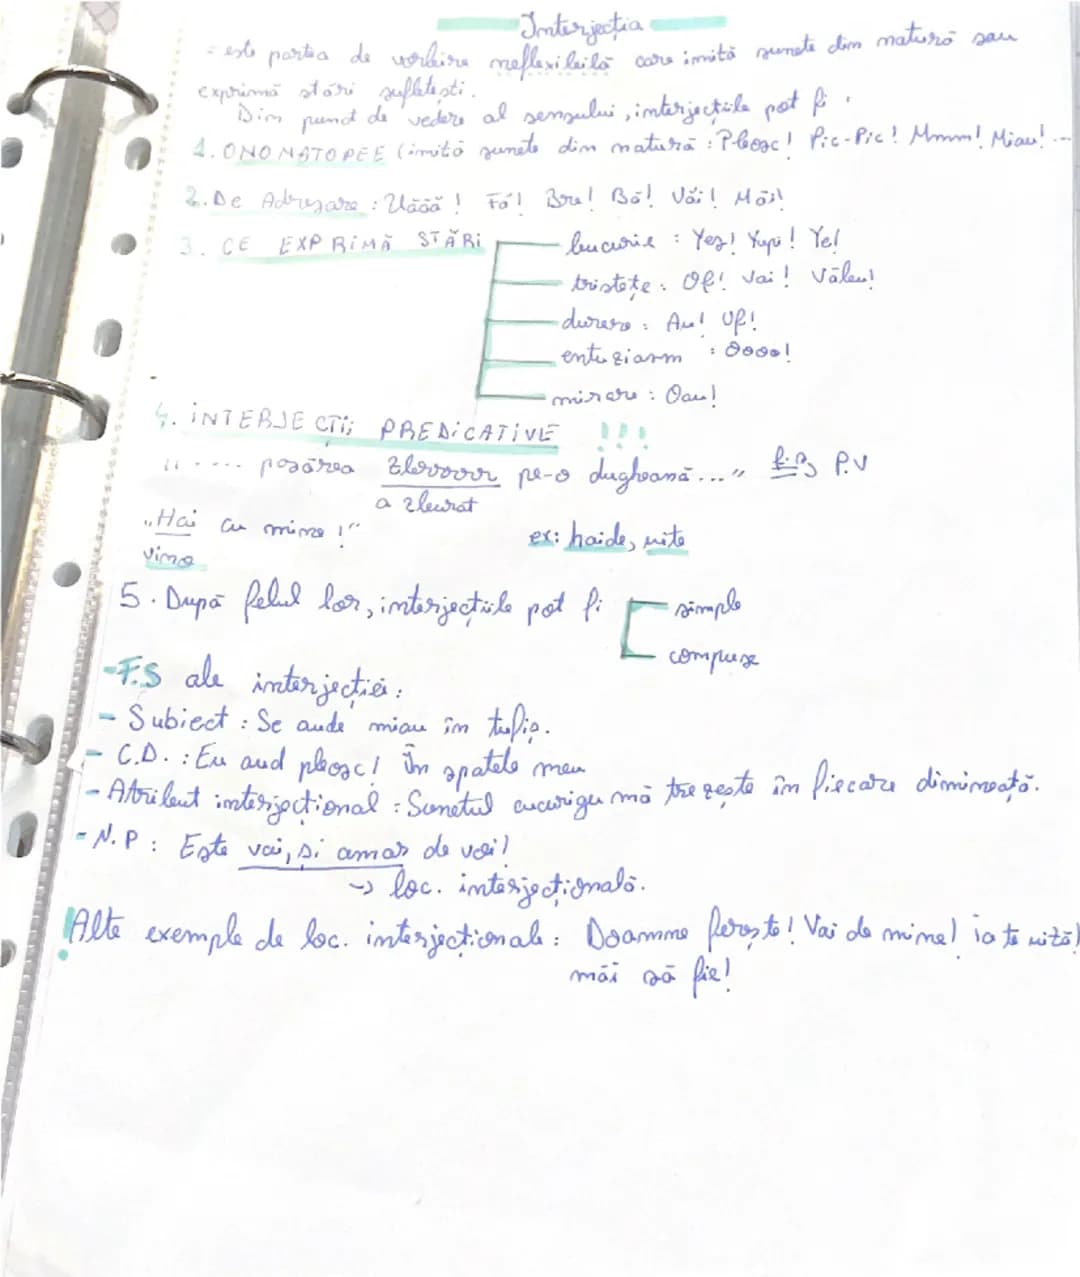 Interjecția
- este partea de vorbire neflexibilă care imită sunete din natură sau
exprimă stări sufletești.
Din punct de vedere al sensului, interjecțiile pot fi:
1. ONOMATOPEE (imită sunete din natură: Pleosc! Pic-Pic! Mmm! Miau!...
2. De Adresare: Uăăă! Fă! Bre! Bă! Văi! Măi!
3. CE EXPRIMĂ STĂRI
bucurie: Yes! Yupi! Ye!
tristețe: Of! Vai! Văleu!
durere: Au! Uf!
entuziasm: Oooo!
mirare: Oau!
4. INTERJECȚII PREDICATIVE !!!
„.... pasărea zbrrrr pe-o dugheană..." P.V
a zburat
„Hai cu mine!"
vino
ex: haide, uite
5. După felul lor, interjecțiile pot fi
simple
compuse
-F.S ale interjecției:
- Subiect: Se aude miau în tufiș.
- C.D.: Eu aud pleosc! în spatele meu
- Atribut interjecțional: Sunetul cucurigu mă trezește în fiecare dimineață.
- N.P: Este vai, și amar de voi!
-> loc. interjecțională.
!Alte exemple de loc. interjecționale: Doamne ferește! Vai de mine! ia te uită!
măi să fie!